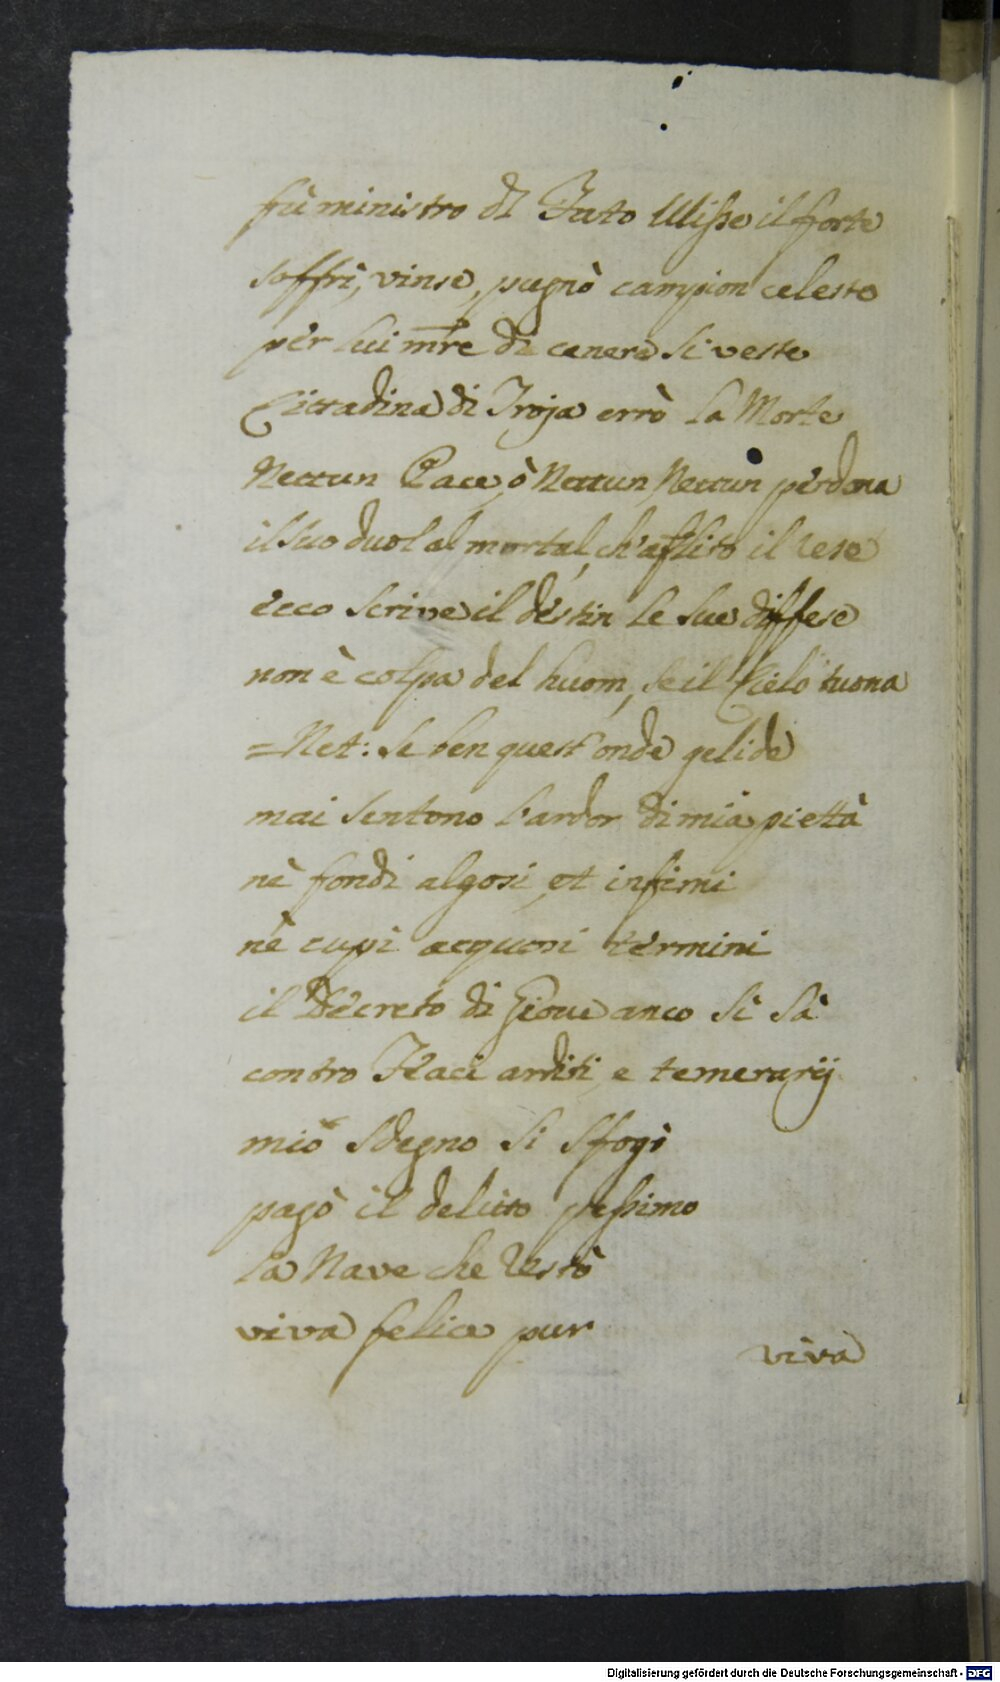 fù ministro di Fato Ulisse il forte
soffrì, vinse, pugnò campion celeste
per lui mr̃e di cenere si veste
Cittadina di Troja errò la Morte
Nettun Pace, ò Nettun, Nettun perdona
il suo duol al mortal, ch'aflito il rese
ecco scrive il destin le sue diffese
non è colpa del huom, se il Cielo tuona
=Net: se ben quest'onde gelide
mai sentono l'ardor di mia piettà
nè fondi algosi, et infimi
nè cupi acquosi termini
il Decreto di Giove anco si sà
contro Feaci arditi, e temerarij
mio sdegno si sfogi
pagò il delitto pessimo
la Nave che restò
viva felice pur
viva
Digitalisierung gefördert durch die Deutsche Forschungsgemeinschaft - DFG